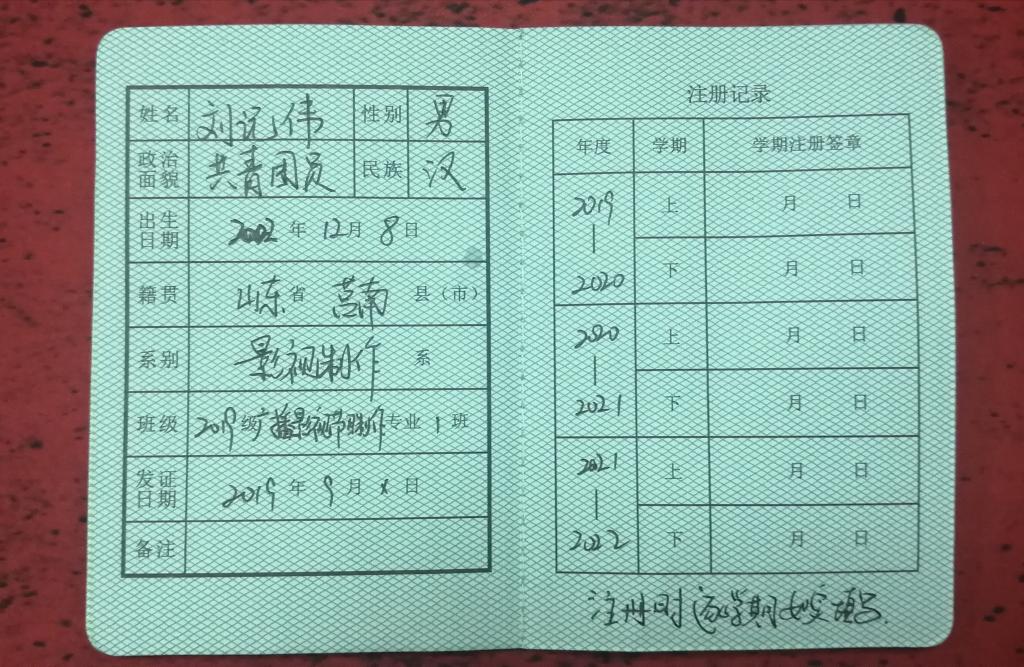 姓名 刘记伟 性别 男
政治面貌 共青团员 民族 汉
出生日期 2002 年 12 月 8 日
籍贯 山东 省 莒南 县（市）
系别 影视制作 系
班级 2019 级 广播影视节目制作 专业 1 班
发证日期 2019 年 9 月 日
备注
注册记录
年度 学期 学期注册签章
2019—2020 上 月 日
下 月 日
2020—2021 上 月 日
下 月 日
2021—2022 上 月 日
下 月 日
注册时逐学期如实填写.